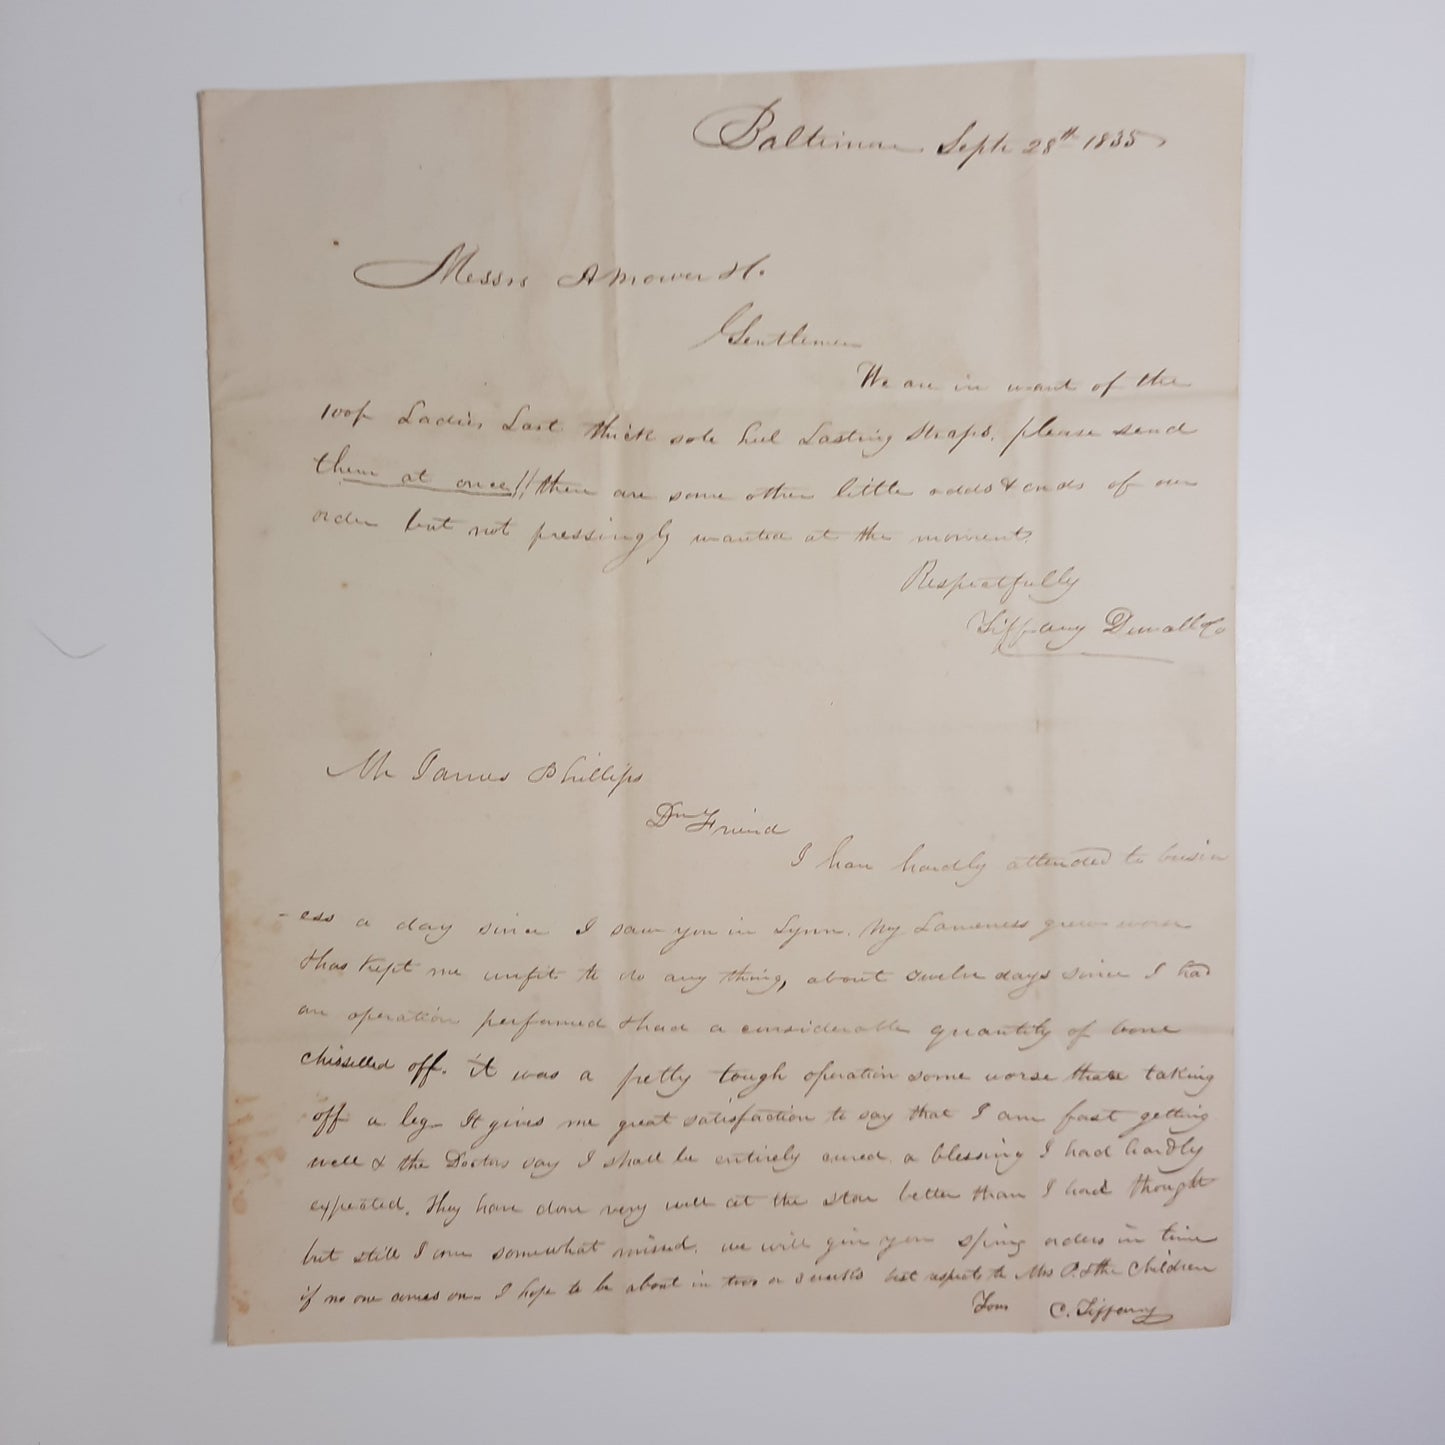 Baltimore Septr 28th 1835
Messrs A Mower
Gentlemen
We are in want of the
100p Ladies Last thick sole heel Lasting Straps. please send
them at once!! there are some other little odds & ends of our
order but not pressingly wanted at the moment.
Respectfully
Tiffany Duvall & Co
Mr James Phillips
Dr Friend
I have hardly attended to busin
-ess a day since I saw you in Lynn. My Lameness grew worse
& has kept me unfit to do any thing, about twelve days since I had
an operation performed & had a considerable quantity of bone
chisselled off. it was a pretty tough operation some worse than taking
off a leg. It gives me great satisfaction to say that I am fast getting
well & the Doctors say I shall be entirely cured. a blessing I had hardly
expected. they have done very well at the store better than I had thought
but still I am somewhat missed. we will give you sping orders in time
if no one comes on. I hope to be about in two or 3 weeks best respects to Mrs P. & the Children
Yours C. Tiffany